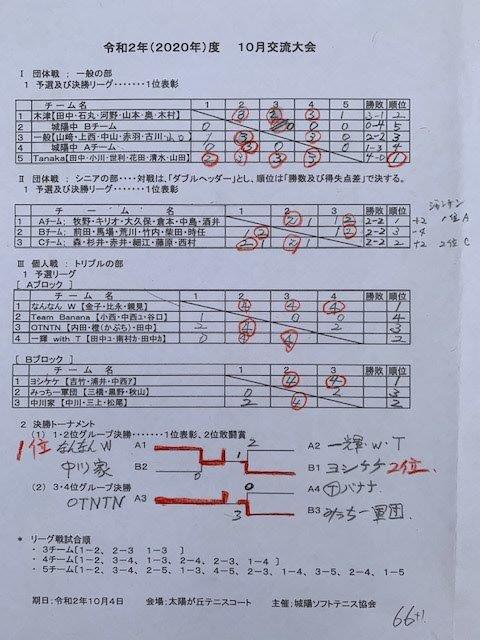 令和2年(2020年)度 10月交流大会
Ⅰ 団体戦 ; 一般の部
1 予選及び決勝リーグ・・・・・・・1位表彰
チーム名 1 2 3 4 5 勝敗 順位
1 木津【田中・石丸・河野・山本・奥・木村】 3 2 3 1 3-1 2
2 城陽中 Bチーム 0 0 0 0 0-4 5
3 一般【山﨑・上西・中山・赤羽・古川・山口 3 3 2-2 3
4 城陽中 Aチーム 0 3 0 0 1-3 4
5 Tanaka【田中・小川・世利・花田・清水・山田】 2 3 3 3 4-0 1
Ⅱ 団体戦 ; シニアの部・・・・対戦は、「ダブルヘッダー」とし、順位は「勝敗及び得失点差」で決する。
1 予選及び決勝リーグ・・・・・・・1位表彰
ジャンケン
チーム名 1 2 3 勝敗 順位
1 Aチーム; 牧野・キリオ・大久保・倉本・中島・酒井 2 1 1 2 2-2 1 +2 1位 A
2 Bチーム; 前田・馬場・荒川・竹内・柴田・時任 1 2 1 2 2-2 3 -4
3 Cチーム; 森・杉井・赤井・細江・藤原・西村 2 1 2 1 2-2 2 +2 2位 C
Ⅲ 個人戦 ; トリプルの部
1 予選リーグ
[ Aブロック ]
チーム名 1 2 3 4 勝敗 順位
1 なんなん W 【金子・比永・鏡見】 4 4 4 1
2 Team Banana【小西・中西ュ・谷口】 1 0 0 4
3 OTNTN【内田・橙(かぶち)・田中】 2 4 2 3
4 一輝 with T 【田中ユ・南村カ・田中カ】 0 4 4 2
[ Bブロック ]
チーム名 1 2 3 勝敗 順位
1 ヨシケケ【吉竹・浦井・中西ｱ】 4 4 1
2 みっちー軍団【三橋・黒野・秋山】 0 2 3
3 中川家【中川・三上・松尾】 2 4 2
2 決勝トーナメント
(1) 1・2位グループ決勝・・・・・・・1位表彰、2位敢闘賞
1位 なんなんW A1 2 A2 一輝W・T
中川家 B2 0 1 B1 ヨシケケ 2位.
(2) 3・4位グループ決勝
OTNTN A3 0 A4 Ⓣバナナ
3 B3 みっちー軍団
* リーグ戦試合順
・ 3チーム〔1-2、 2-3 1-3 〕
・ 4チーム〔1-2、 3-4、 1-3、 2-4、 2-3、 1-4 〕
・ 5チーム〔1-2、 3-4、 2-5、 1-3、 4-5、 2-3、 1-4、 3-5、 2-4、 1-5
期日:令和2年10月4日 会場:太陽が丘テニスコート 主催:城陽ソフトテニス協会
66+1